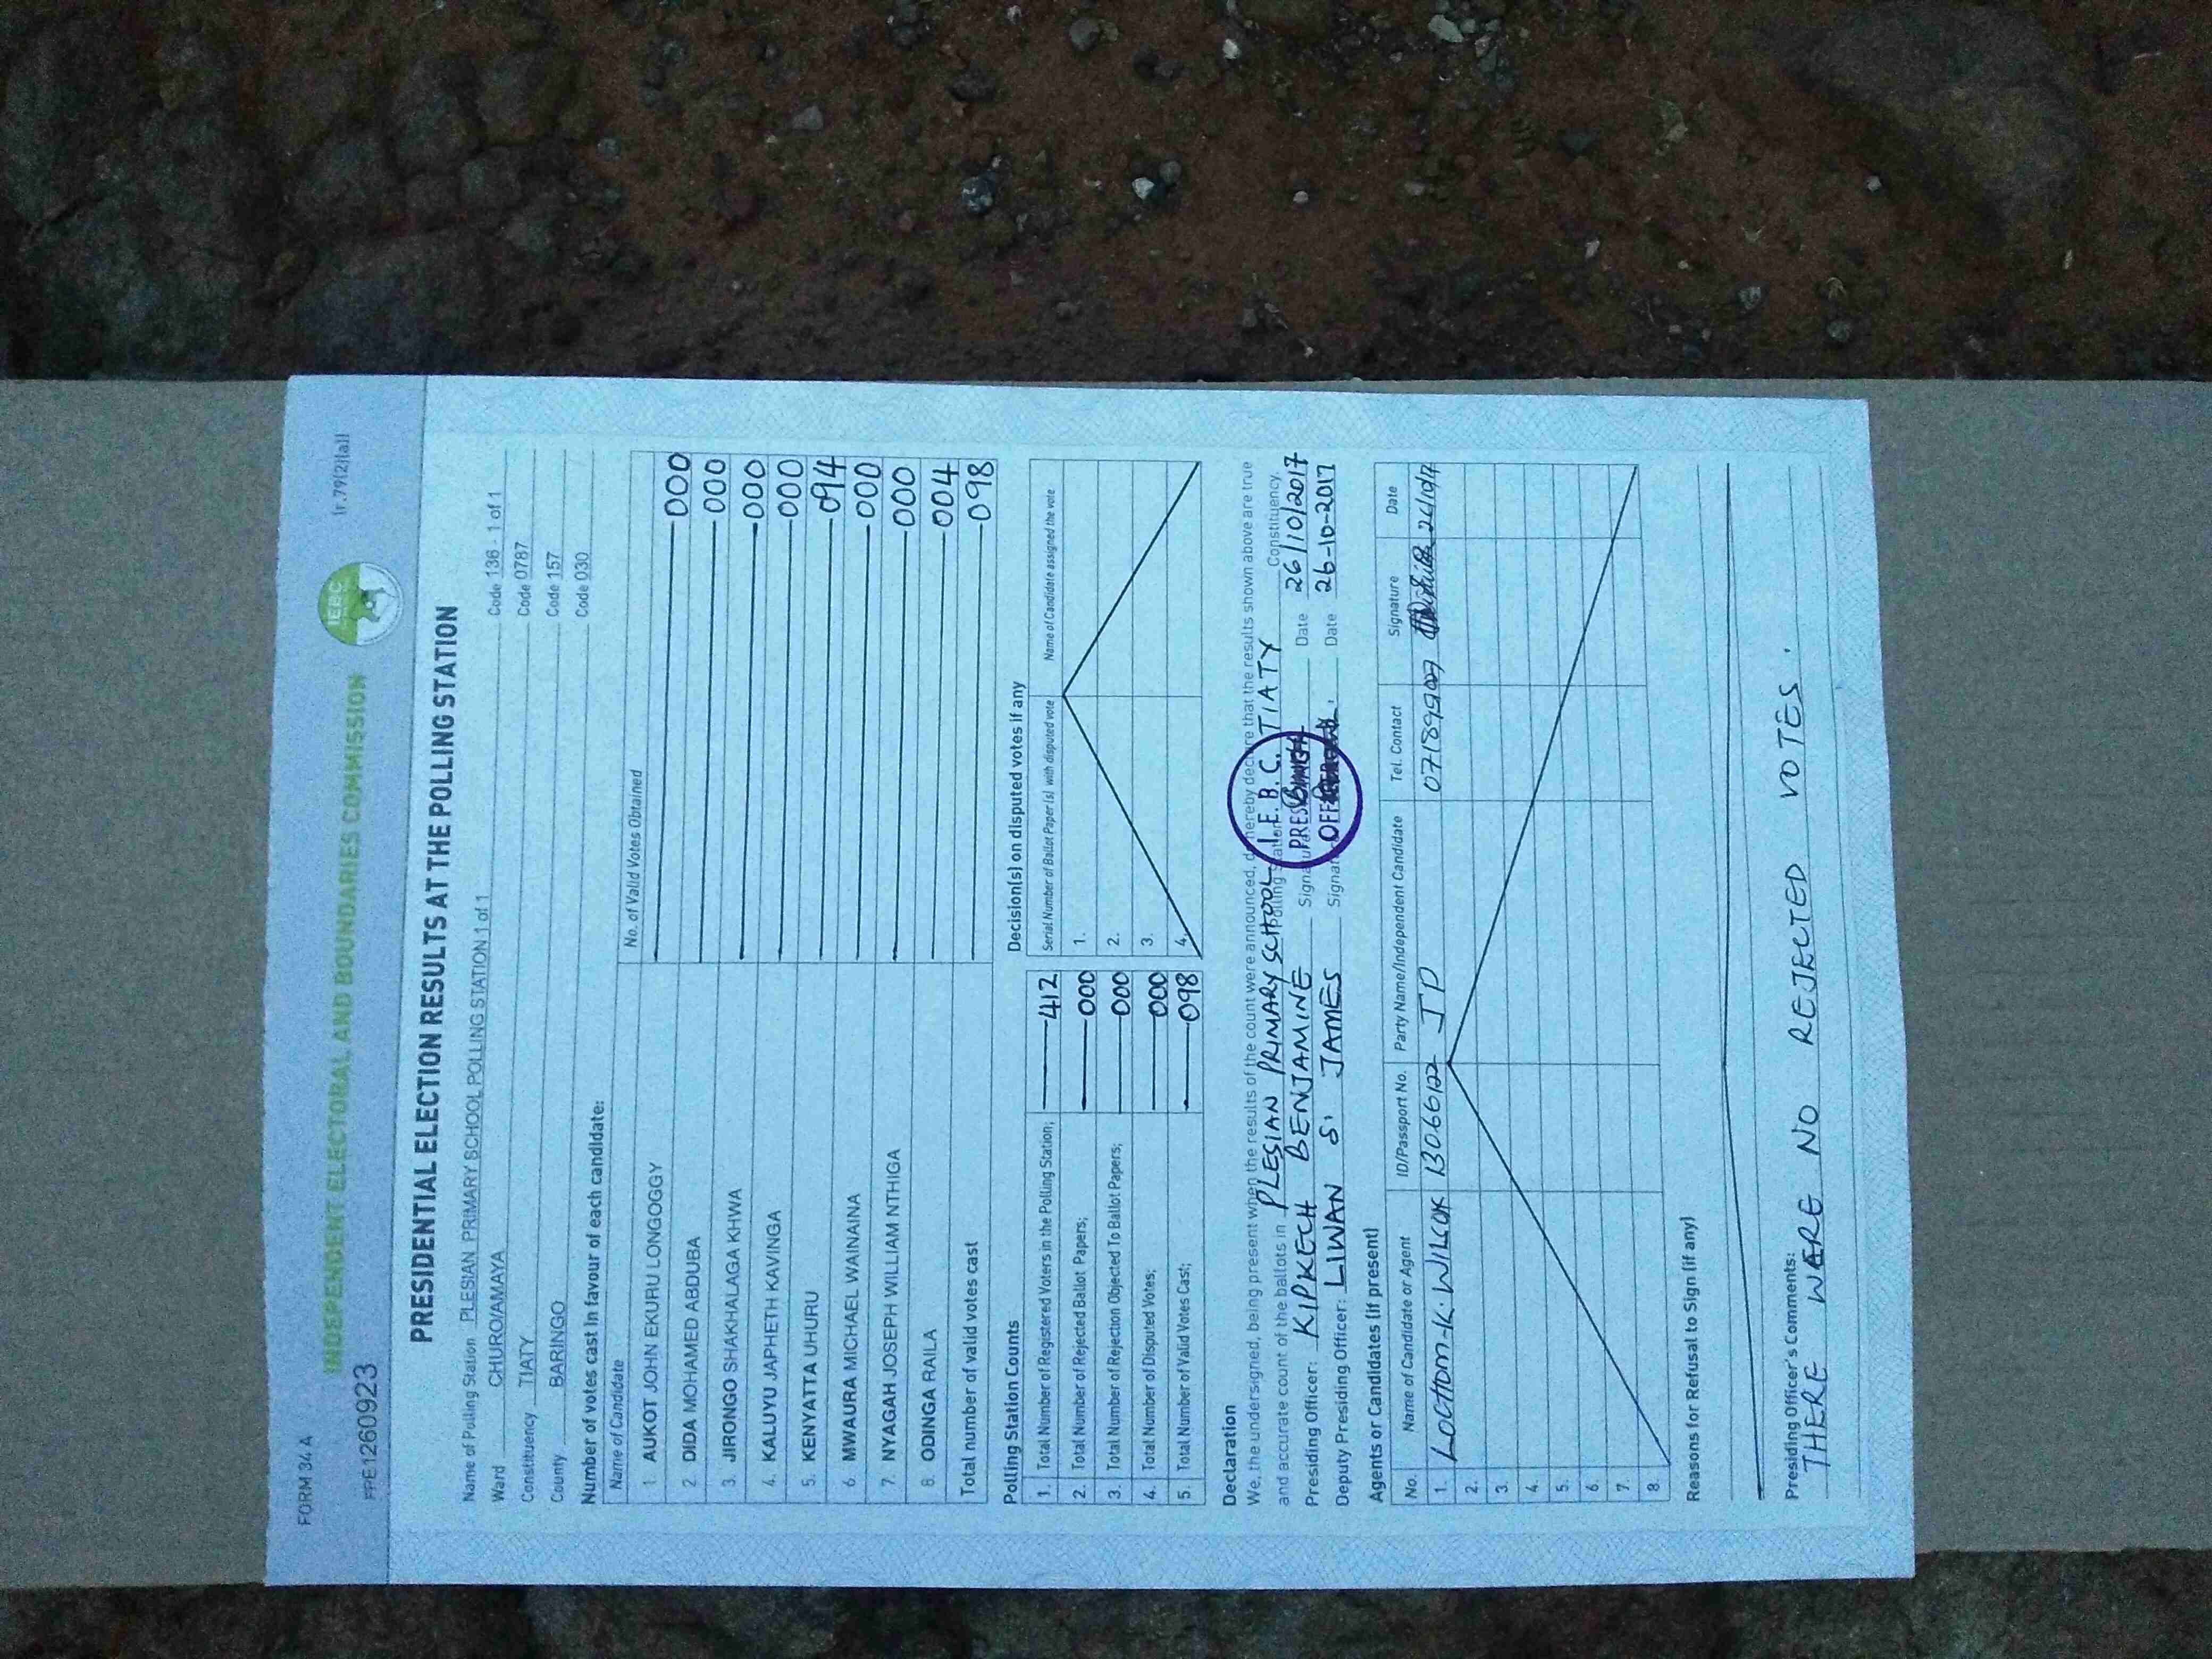 FORM 34 A
INDEPENDENT ELECTORAL AND BOUNDARIES COMMISSION
IEBC
(r.79(2)(a))
PPE1260923
PRESIDENTIAL ELECTION RESULTS AT THE POLLING STATION
Name of Polling Station PLESIAN PRIMARY SCHOOL POLLING STATION 1 of 1 Code 136 - 1 of 1
Ward CHURO/AMAYA Code 0787
Constituency TIATY Code 157
County BARINGO Code 030
Number of votes cast in favour of each candidate:
Name of Candidate No. of Valid Votes Obtained
1 AUKOT JOHN EKURU LONGOGGY 000
2 DIDA MOHAMED ABDUBA 000
3. JIRONGO SHAKHALAGA KHWA 000
4. KALUYU JAPHETH KAVINGA 000
5. KENYATTA UHURU 094
6 MWAURA MICHAEL WAINAINA 000
7. NYAGAH JOSEPH WILLIAM NTHIGA 000
8 ODINGA RAILA 004
Total number of valid votes cast 098
Polling Station Counts
1. Total Number of Registered Voters in the Polling Station; 412
2. Total Number of Rejected Ballot Papers; 000
3. Total Number of Rejection Objected To Ballot Papers; 000
4. Total Number of Disputed Votes; 000
5. Total Number of Valid Votes Cast; 098
Decision(s) on disputed votes if any
Serial Number of Ballot Paper(s) with disputed vote Name of Candidate assigned the vote
1.
2.
3.
4.
Declaration
We, the undersigned, being present when the results of the count were announced, do hereby declare that the results shown above are true
and accurate count of the ballots in PLESIAN PRIMARY SCHOOL Polling Station TIATY Constituency.
Presiding Officer: KIPKECH BENJAMINE Signature Date 26/10/2017
Deputy Presiding Officer: LIWAN S. JAMES Signature Date 26-10-2017
I.E.B.C.
PRESIDING
OFFICER
Agents or Candidates (if present)
No. Name of Candidate or Agent ID/Passport No. Party Name/Independent Candidate Tel. Contact Signature Date
1. K. WILCOK JP 26/10/17
2.
3.
4.
5.
6
7.
8.
Reasons for Refusal to Sign (if any)
Presiding Officer's Comments:
THERE WERE NO REJECTED VOTES.